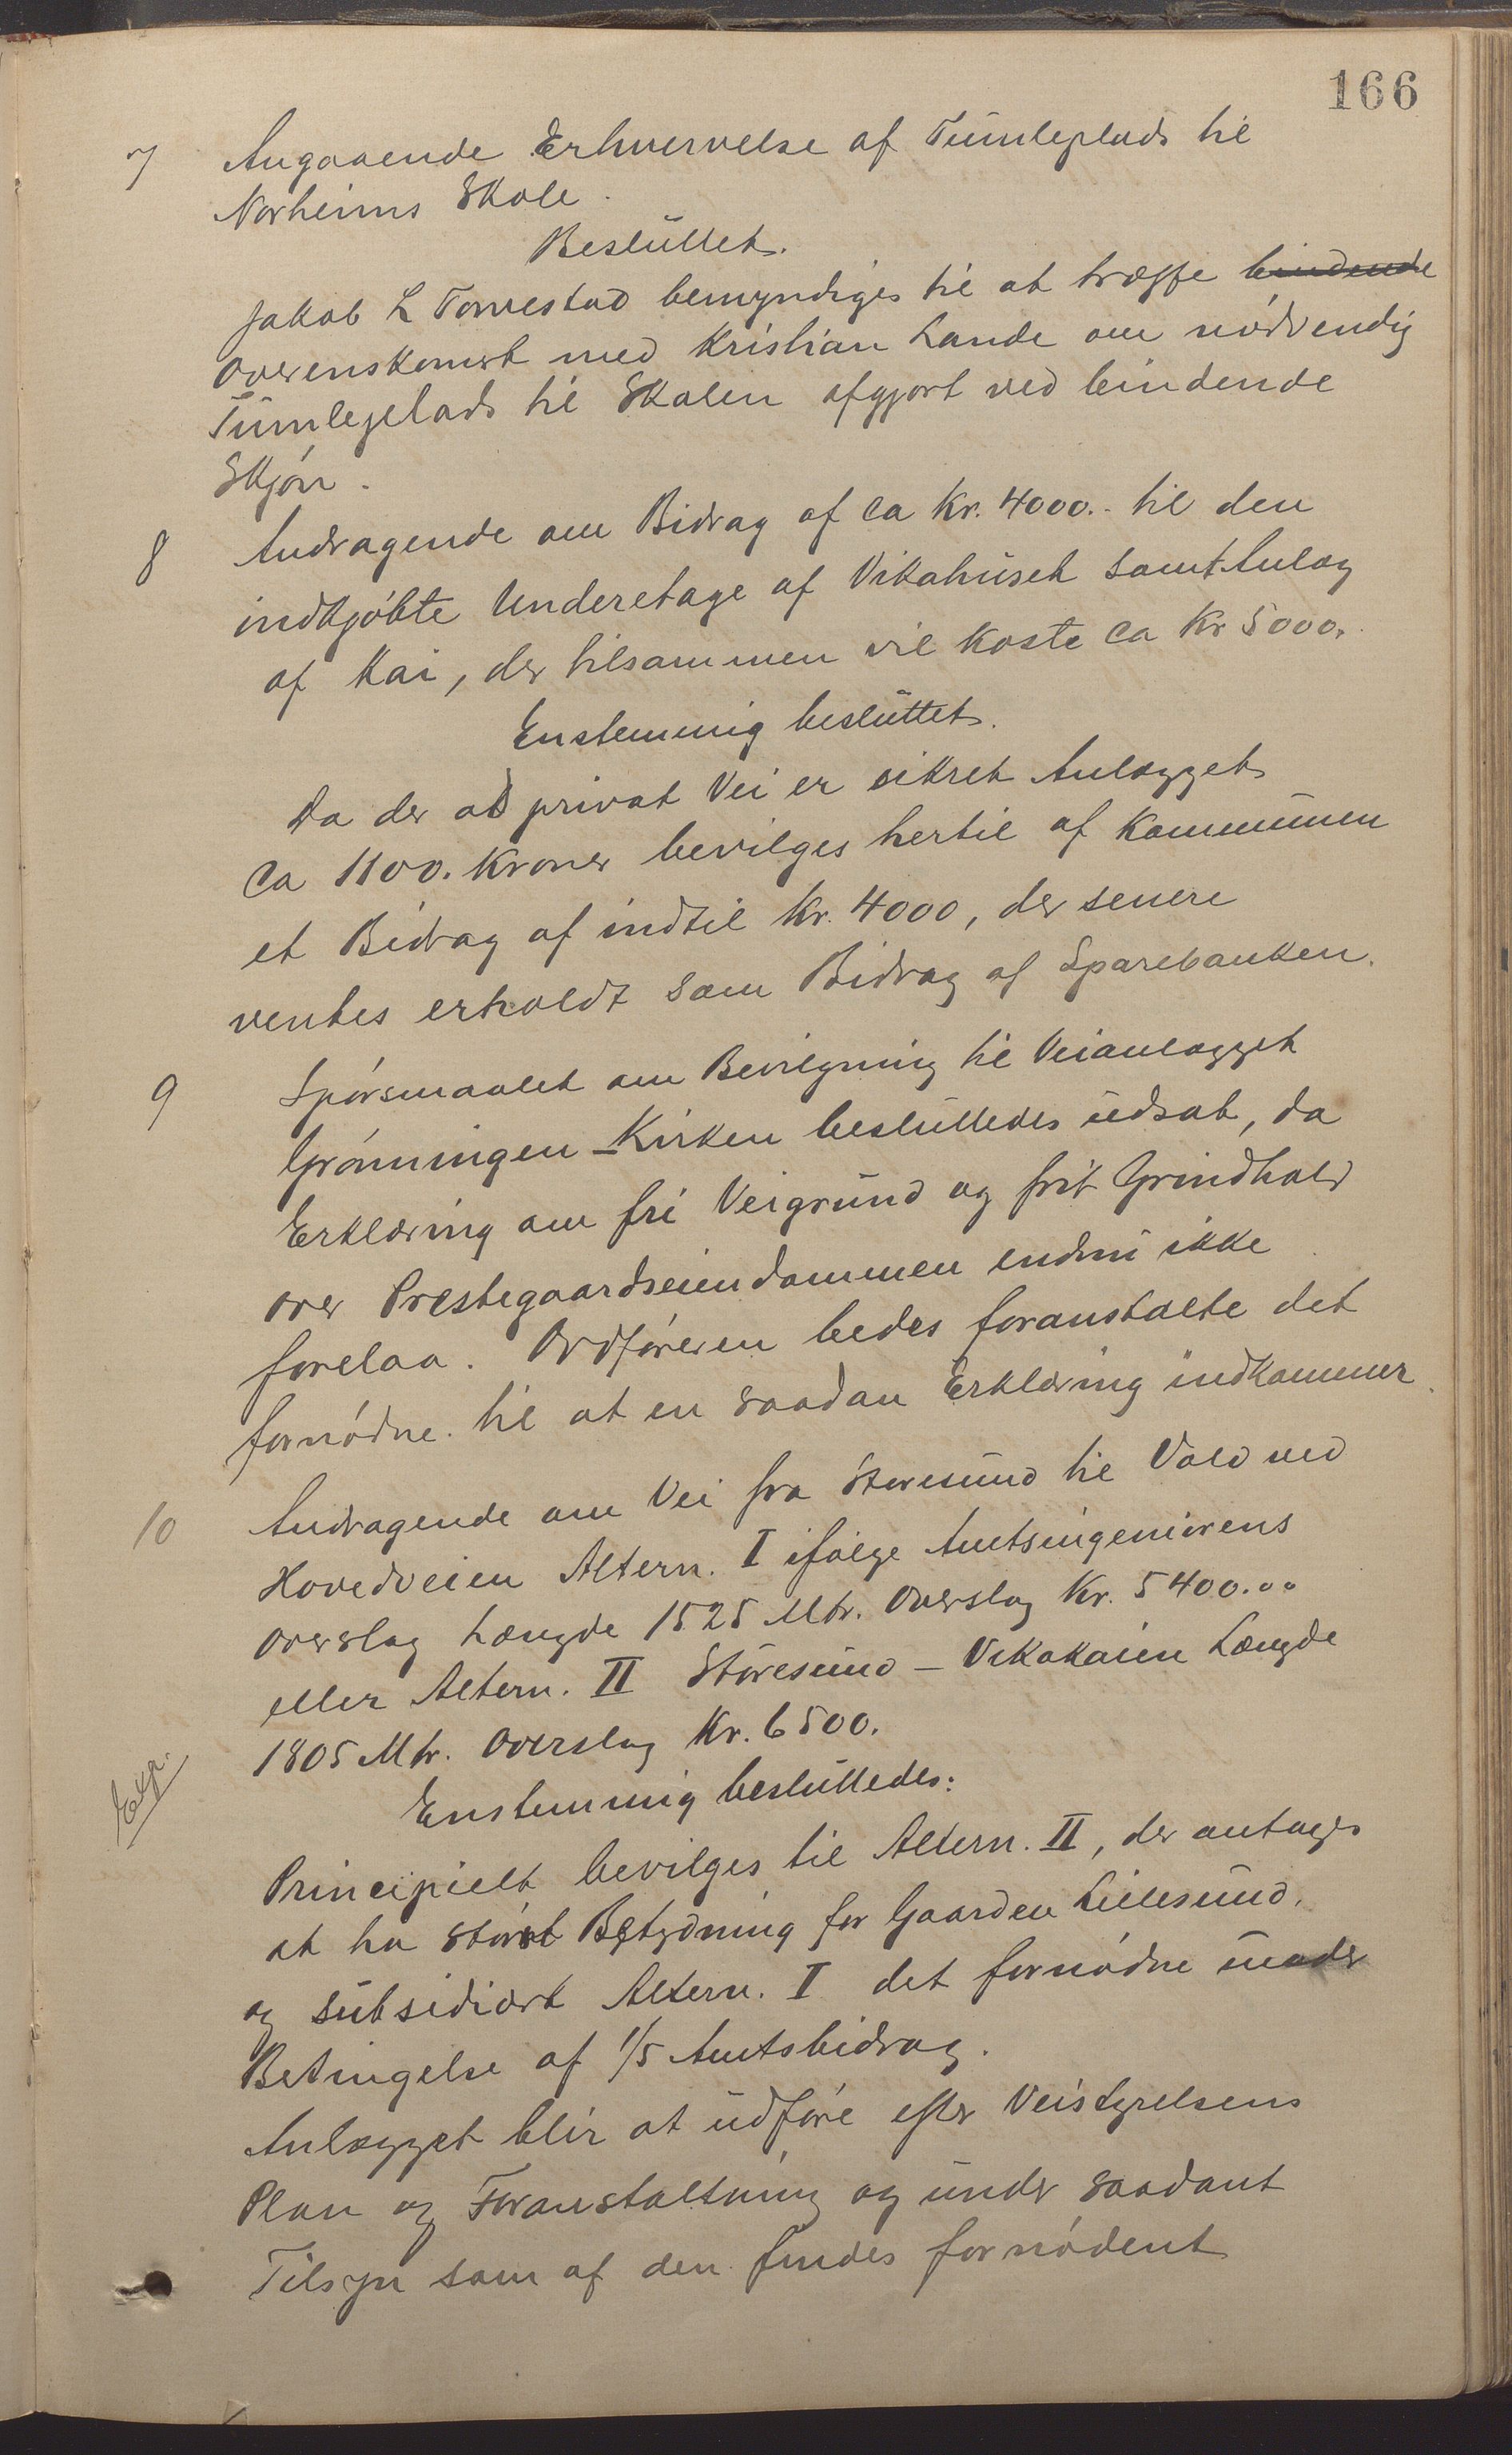 166
7 Angaaende Erhvervelse af Tumleplads til
Norheims Skole.
Besluttet.
Jakob L Torvestad bemyndiges til at træffe bindende
Overenskomst med Kristian Lande om nødvendig
Tumleplads til Skolen afgjort ved bindende
Skjøn.
8 Andragende om Bidrag af ca Kr. 4000.- til den
indkjøbte Underetage af Vikahuset samt Anlæg
af Kai, der tilsammen vil koste ca Kr 5000.
Enstemmig besluttet.
Da der ad privat Vei er sikret Anlægget
ca 1100. Kroner bevilges hertil af Kommunen
et Bidrag af indtil Kr. 4000, der senere
ventes erholdt som Bidrag af Sparebanken.
9 Spørsmaalet om Bevilgning til Veianlægget
Grønningen - Kirken besluttedes udsat, da
Erklæring om fri Veigrund og frit Grindhold
over Præstegaardseiendommen endnu ikke
forelaa. Ordføreren bedes foranstalte det
fornødne til at en saadan Erklæring indkommer.
10 Andragende om Vei fra Storesund til Vold ved
Hovedveien Altern. I ifølge Amtsingeniørens
Overslag Længde 1525 Mtr. Overslag Kr. 5400.00
eller Altern. II Storesund - Vikakaien Længde
1805 Mtr. Overslag Kr. 6500.
Exp.
Enstemmig besluttedes:
Principielt bevilges til Altern. II, der antages
at ha størst Betydning for Gaarden Lillesund,
og subsidiært Altern. I det fornødne under
Betingelse af 1/5 Amtsbidrag.
Anlægget blir at udføre efter Veistyrelsens
Plan og Foranstaltning og under saadant
Tilsyn som af den findes fornødent